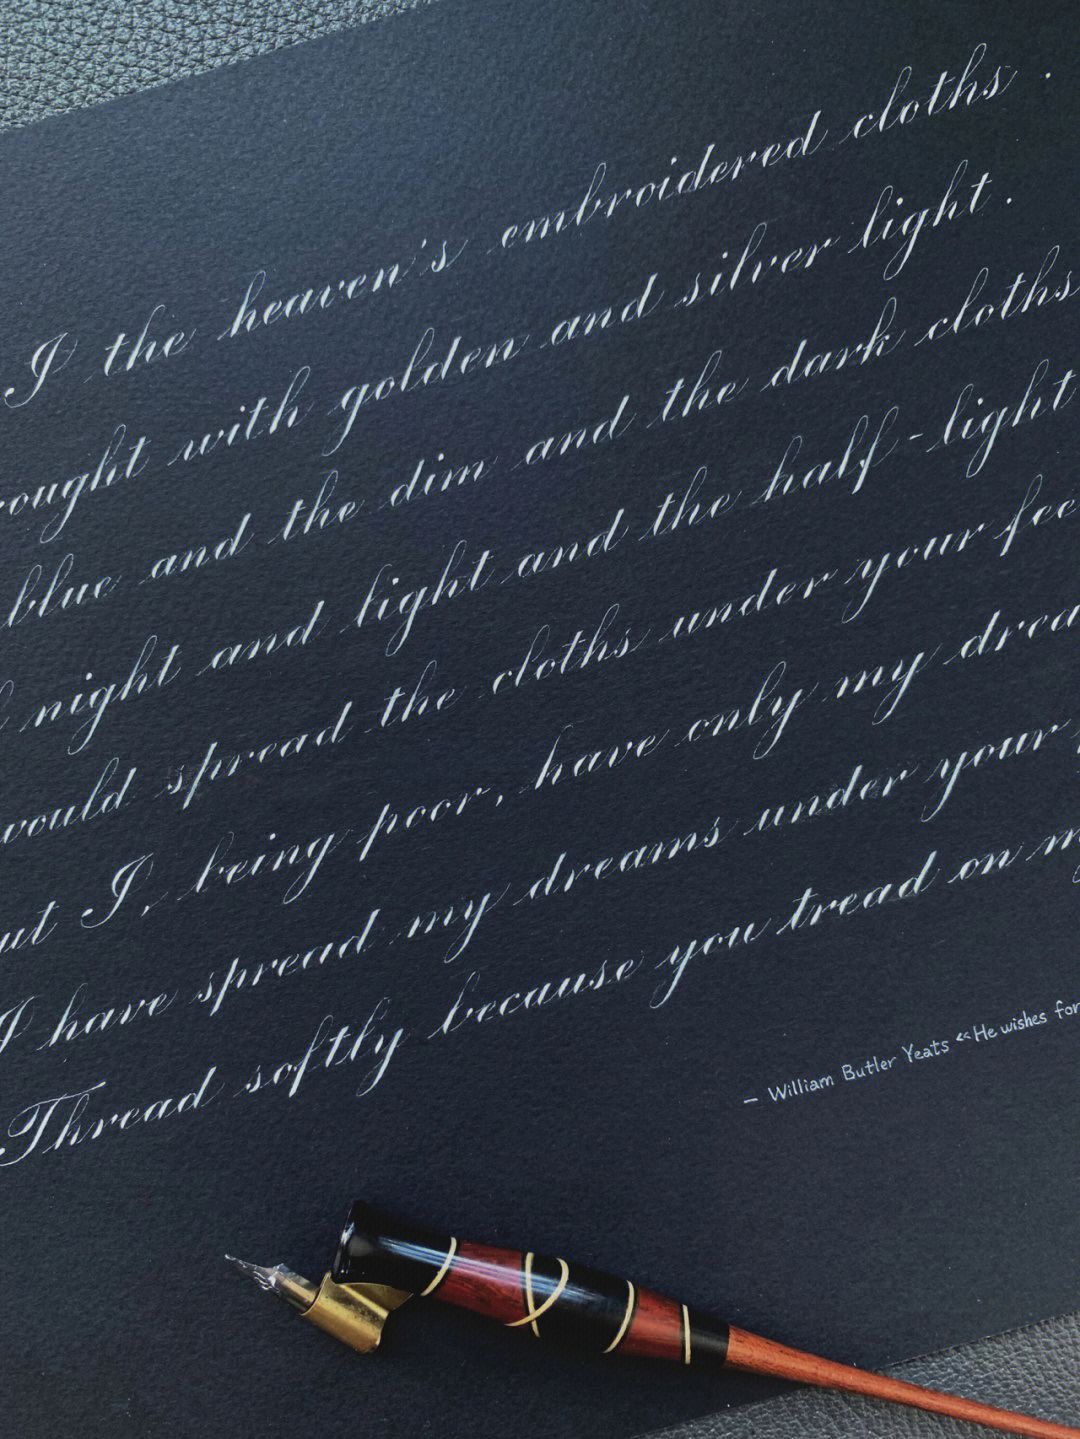 I the heaven's embroidered cloths.
rought with golden and silver light.
blue and the dim and the dark cloths
night and light and the half-light
would spread the cloths under your fee
ut I, being poor, have only my drea
I have spread my dreams under your
Thread softly because you tread on m
— William Butler Yeats «He wishes for